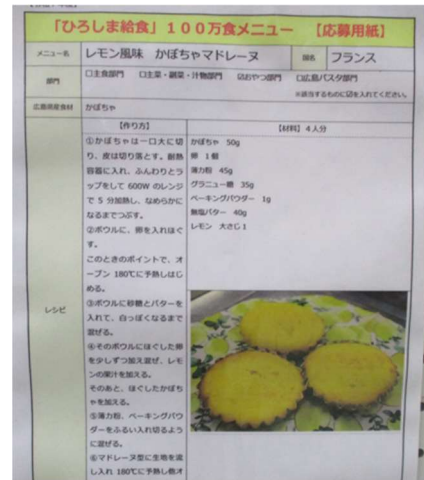 「ひろしま給食」１００万食メニュー 【応募用紙】
メニュー名 レモン風味 かぼちゃマドレーヌ 国名 フランス
部門 □主食部門 □主菜・副菜・汁物部門 ☑おやつ部門 □広島パスタ部門
※該当するものに☑を入れてください。
広島県産食材 かぼちゃ
レシピ
【作り方】
①かぼちゃは一口大に切
り、皮は切り落とす。耐熱
容器に入れ、ふんわりとラ
ップをして 600W のレンジ
で 5 分加熱し、なめらかに
なるまでつぶす。
②ボウルに、卵を入れほぐ
す。
このときのポイントで、オ
ーブン 180℃に予熱しはじ
める。
③ボウルに砂糖とバターを
入れて、白っぽくなるまで
混ぜる。
④そのボウルにほぐした卵
を少しずつ加え混ぜ、レモ
ンの果汁を加える。
そのあと、ほぐしたかぼち
ゃを加える。
⑤薄力粉、ベーキングパウ
ダーをふるい入れ切るよう
に混ぜる。
⑥マドレーヌ型に生地を流
し入れ 180℃に予熱し物オ
【材料】４人分
かぼちゃ 50g
卵 １個
薄力粉 45g
グラニュー糖 35g
ベーキングパウダー 1g
無塩バター 40g
レモン 大さじ１